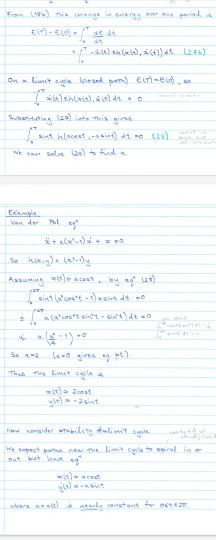 From (18b) The change in energy over one period is
E(T) - E(0) = ∫₀ᵀ dE/dt dt
= ∫₀ᵀ -ẋ(t) εh(x(t), ẋ(t)) dt. (27b)
On a limit cycle (closed path) E(T) = E(0), so
∫₀ᵀ ẋ(t) εh(x(t), ẋ(t)) dt = 0
Substituting (27) into this gives
∫₀²ᵀ sint h(acost, -asint) dt = 0 (28)
We can solve (28) to find a.
Example
Van der Pol eqⁿ
ẍ + ε(x²-1)ẋ + x = 0
So h(x,y) = (x²-1)y
Assuming x(t) ≈ acost, by eqⁿ (28)
∫₀ sint (a²cos²t - 1) asint dt = 0
∫₀ a(a²cos²t sin²t - sin²t) dt = 0
a(a²/4 - 1) = 0
So a=2 (a=0 gives eq. pt.)
Thus the limit cycle is
x(t) ≈ 2cost
y(t) ≈ -2sint
Now consider stability of limit cycle
We expect paths near the limit cycle to spiral in or
out but have eqⁿ
x(t) ≈ acost
y(t) ≈ -asint
where a=a(t) is nearly constant for 0≤t≤2π.